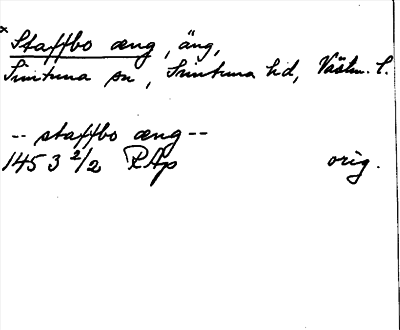 x Staffbo æng, äng,
Simtuna sn, Simtuna hd, Västm. l.
-- staffbo æng --
1453 2/2 RAp orig.